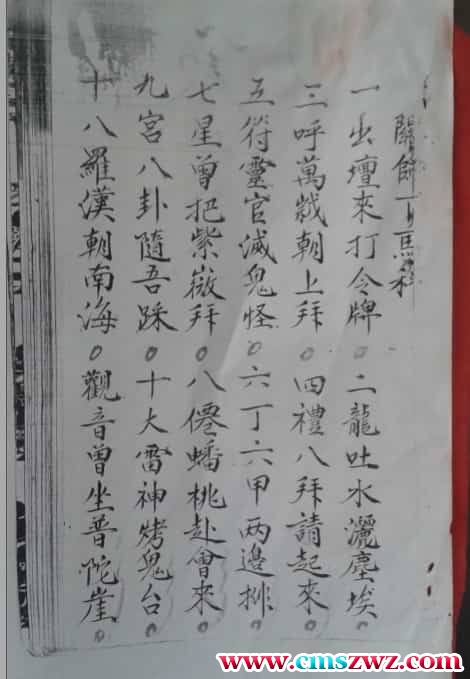 關師下馬科
一出壇來打令牌。二龍吐水灑塵埃
三呼萬歲朝上拜。四禮八拜請起來。
五符靈官滅鬼怪。六丁六甲两邉排
七星曾把紫薇拜。八僊蟠桃赴會來。
九宮八卦隨吾踩。十大雷神烤鬼台。
十八羅漢朝南海。觀音曾坐普陀崖。
www.cmszwz.com